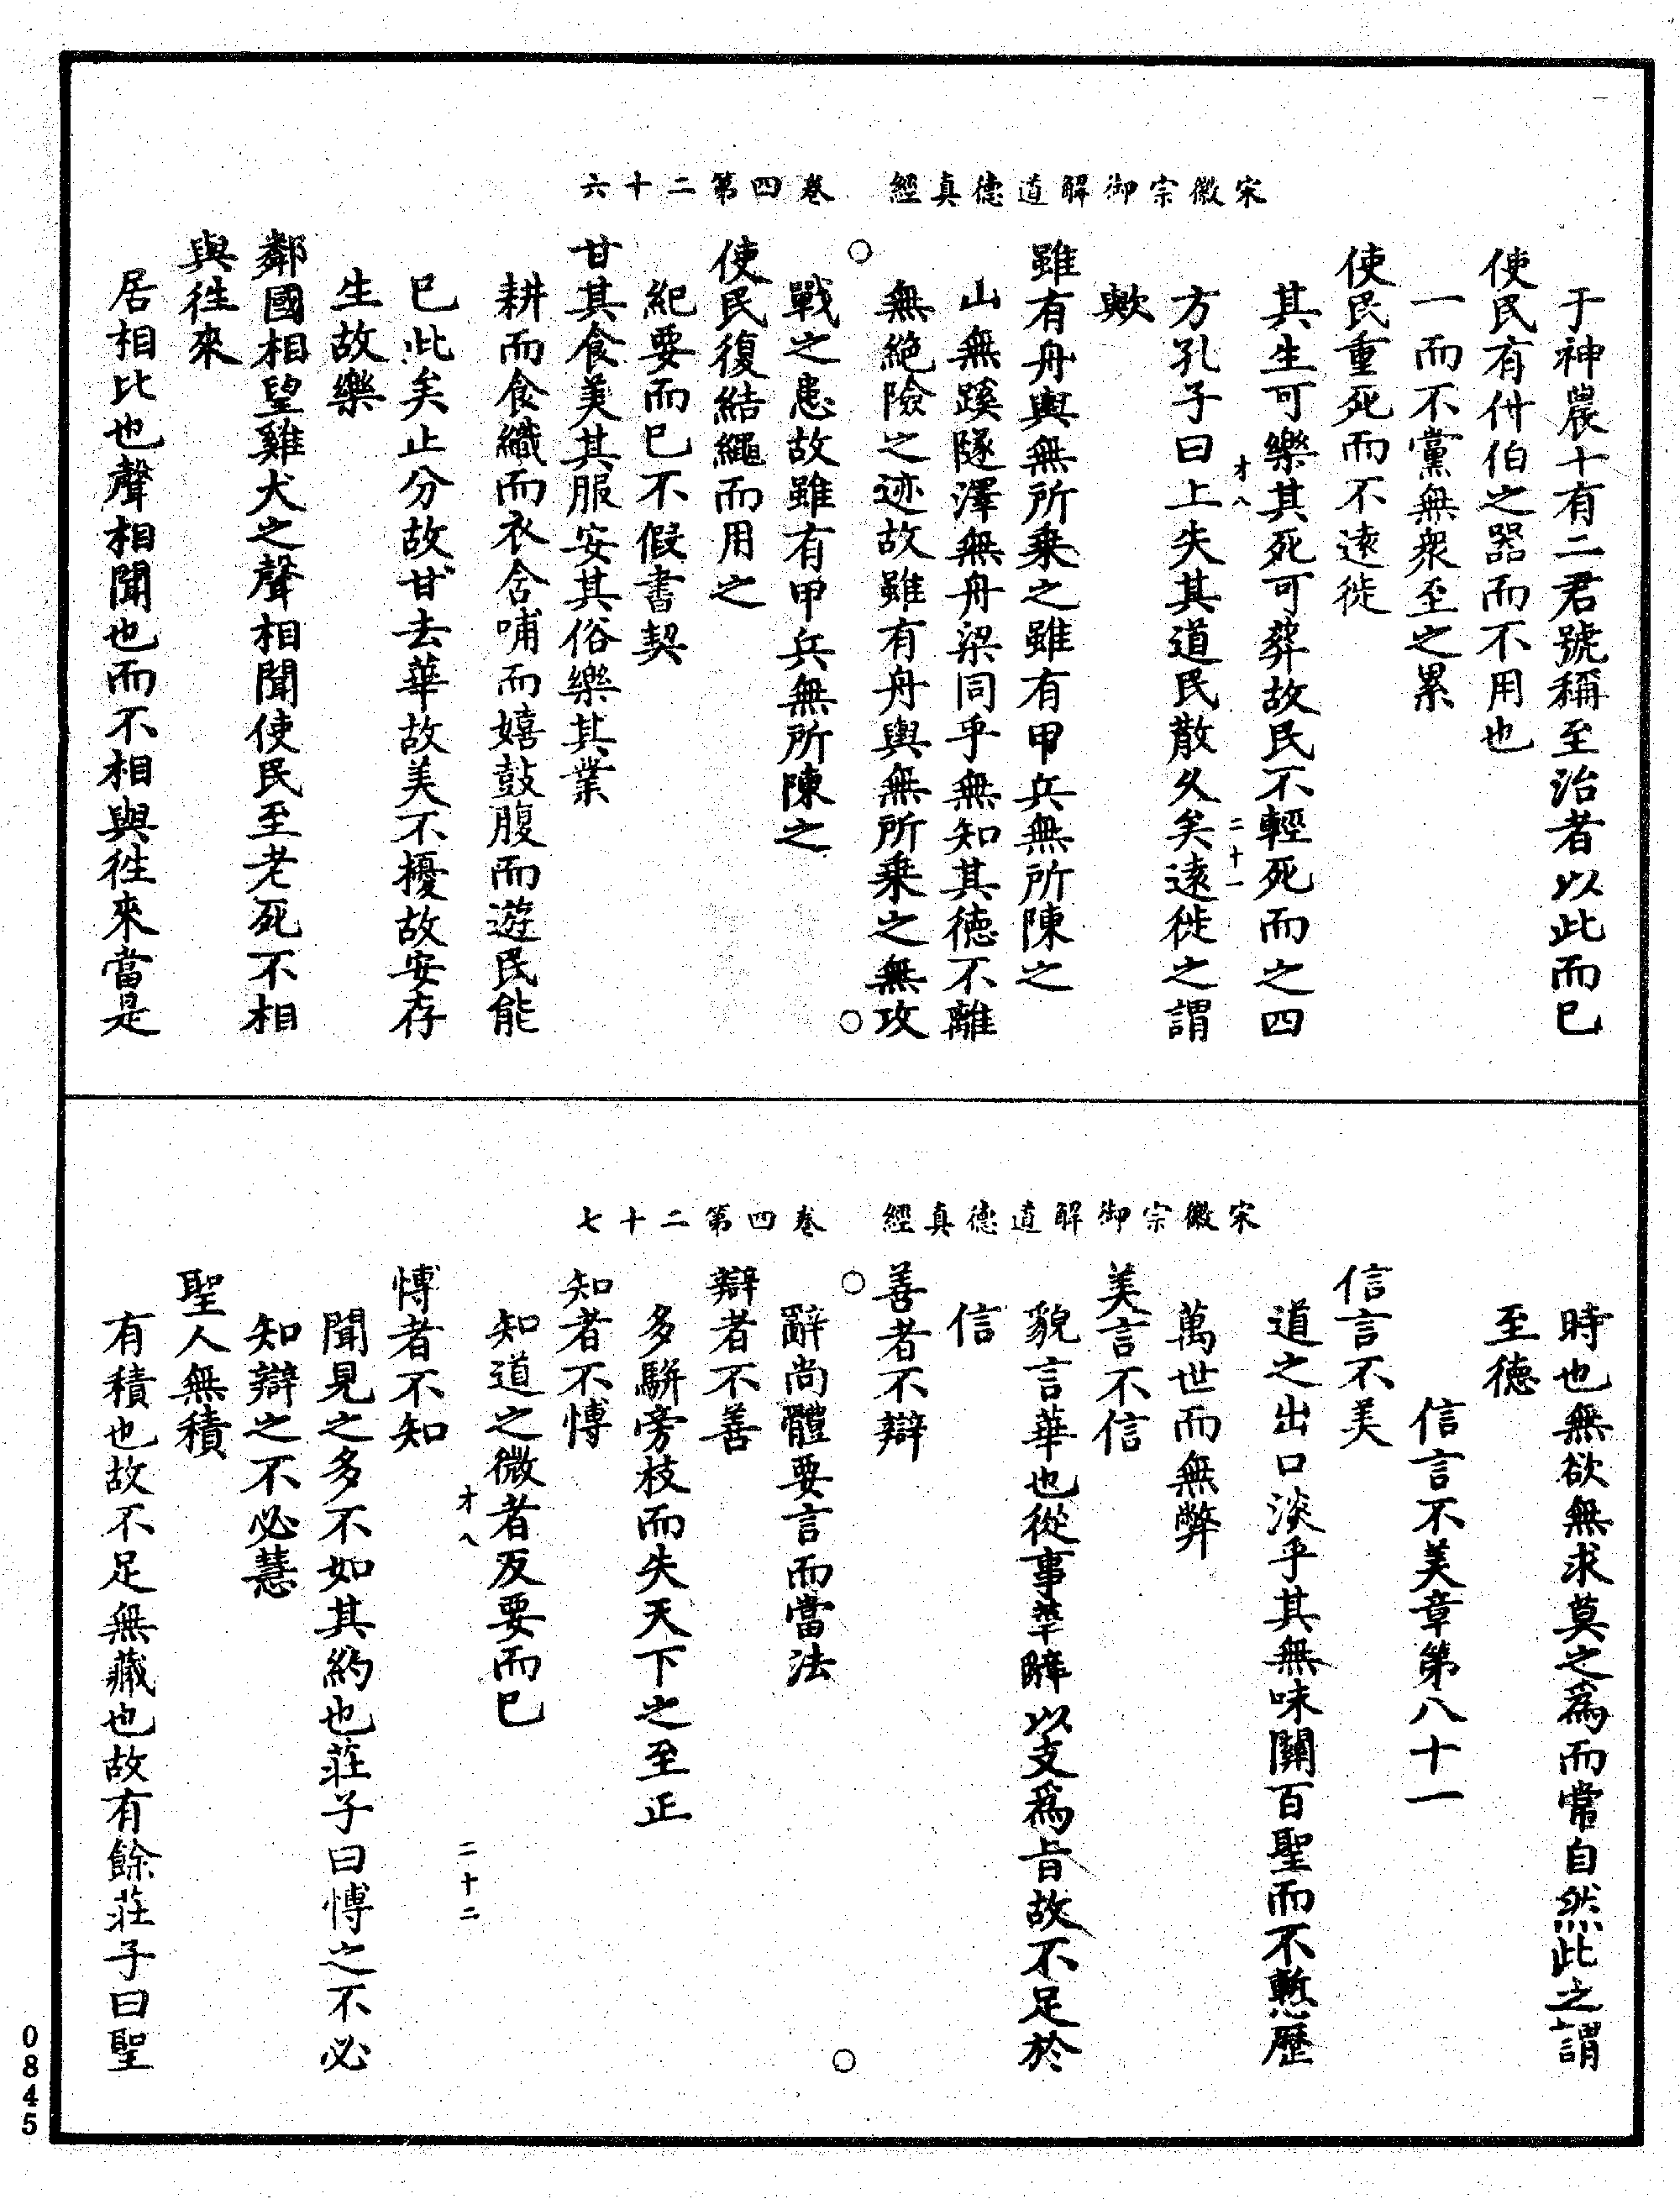 宋徽宗御解道德真經 卷四第二十六
于神農十有二君號稱至治者以此而已
使民有什伯之器而不用也
一而不黨無衆至之累
使民重死而不遠徙
其生可樂其死可葬故民不輕死而之四
才八 二十一
方孔子曰上失其道民散久矣遠徙之謂
歟
雖有舟輿無所乗之雖有甲兵無所陳之
山無蹊隧澤無舟梁同乎無知其德不離
無絕險之迹故雖有舟輿無所乗之無攻
戰之患故雖有甲兵無所陳之
使民復結繩而用之
紀要而已不假書契
甘其食美其服安其俗樂其業
耕而食織而衣含哺而嬉鼓腹而遊民能
已此矣止分故甘去華故美不擾故安存
生故樂
鄰國相望雞犬之聲相聞使民至老死不相
與徃來
居相比也聲相聞也而不相與徃來當是
宋徽宗御解道德真經 卷四第二十七
時也無欲無求莫之爲而常自然此之謂
至德
信言不美章第八十一
信言不美
道之出口淡乎其無味關百聖而不慙歷
萬世而無弊
美言不信
貌言華也從事華辭以支爲旨故不足於
信
善者不辯
辭尚體要言而當法
辯者不善
多駢旁枝而失天下之至正
知者不博
知道之微者反要而已
才八 二十二
博者不知
聞見之多不如其約也莊子曰博之不必
知辯之不必慧
聖人無積
有積也故不足無藏也故有餘莊子曰聖
0845